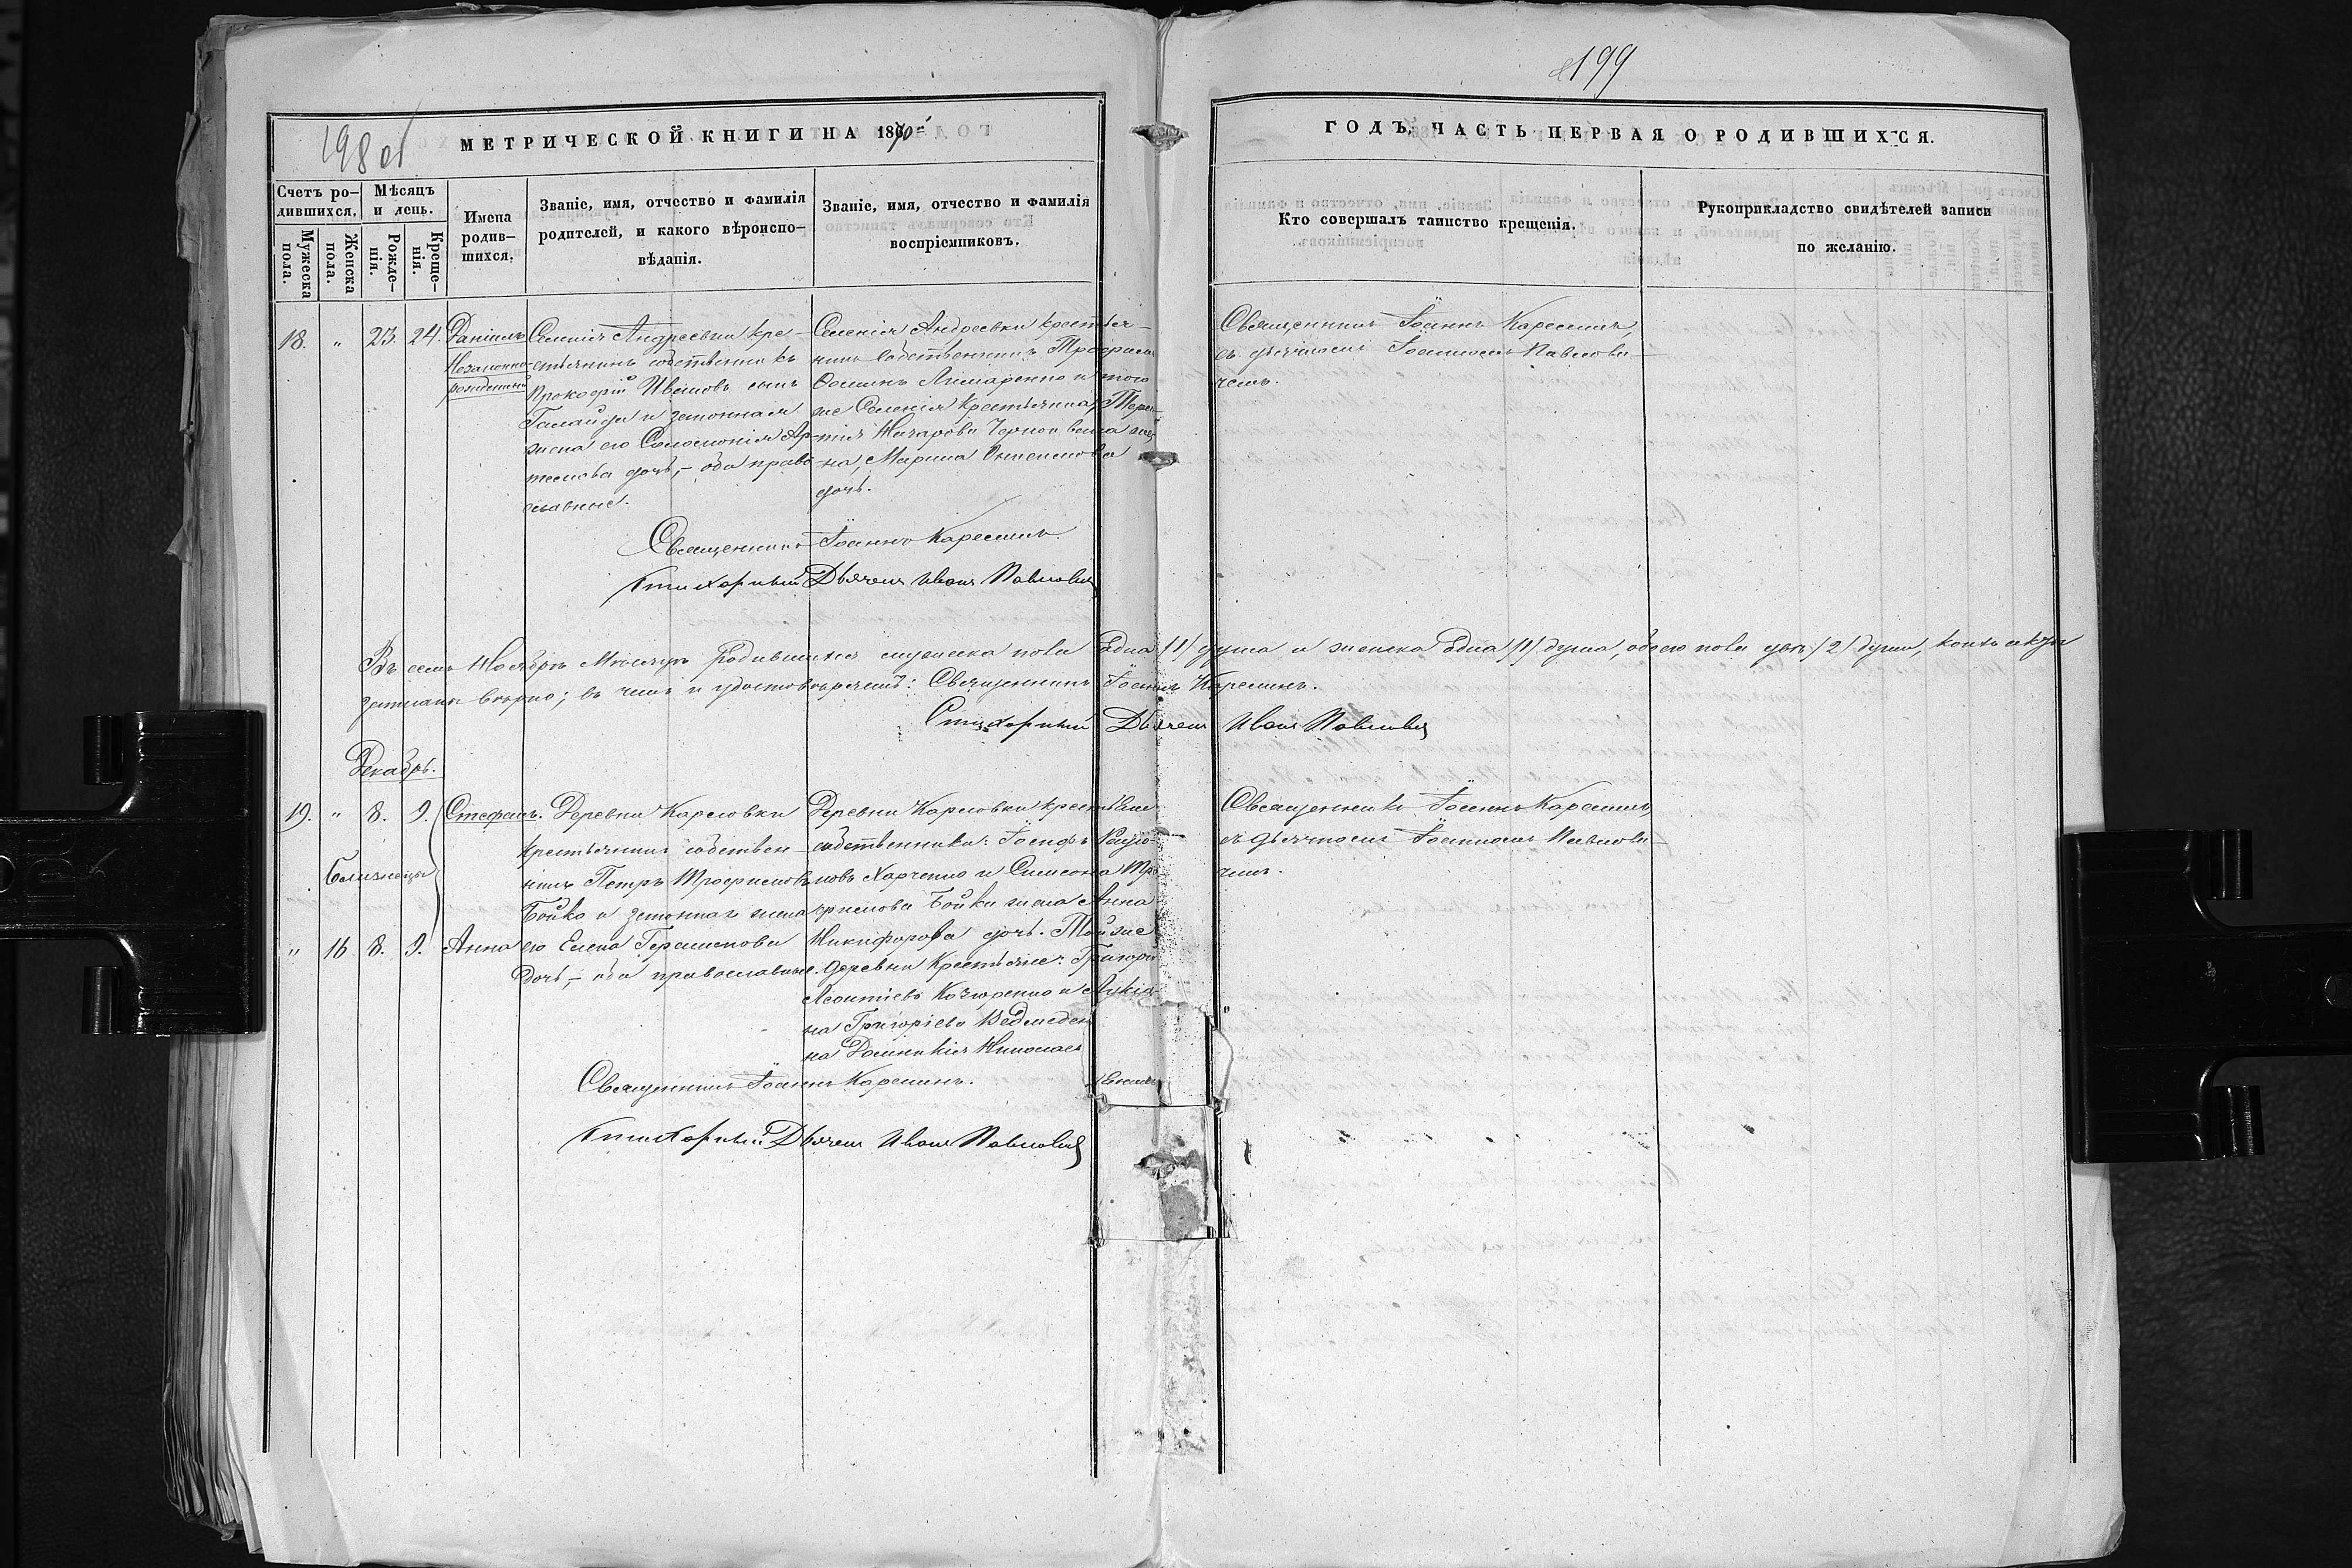 199
198 об
МЕТРИЧЕСКОЙ КНИГИ НА 1870й
ГОДЪ, ЧАСТЬ ПЕРВАЯ О РОДИВШИХСЯ.
Счетъ ро-
дившихся.
Мужеска пола.
Женска пола.
Мѣсяцъ
и день.
Рожде-
нія.
Креще-
нія.
Имена
родив-
шихся.
Званіе, имя, отчество и фамилія
родителей, и какого вѣроиспо-
вѣданія.
Званіе, имя, отчество и фамилія
воспріемниковъ.
Кто совершалъ таинство крещенія.
Рукоприкладство свидѣтелей записи
по желанію.
18. " 23. 24.
Даніилъ
Незаконно-
рожденный
Селенія Андреевки кре-
стьянинъ собственникъ
Прокофій Ивановъ сынъ
Галайда и законная
жена его Соломонія Ар-
темова дочь, – оба право-
славные.
Селенія Андреевки крестья-
нинъ собственникъ Трофимъ
Фоминъ Лимаренко и того
же Селенія крестьянина, Терен-
тія Назарова жена
Марина
дочь.
Священникъ Іоаннъ Карелинъ,
съ дьячкомъ Іоанномъ Павлови-
чемъ.
Священникъ Іоаннъ Карелинъ
Стихарный Дьячекъ Иванъ Павловичъ
Въ семъ Ноябрѣ Мѣсяцѣ родившихся мужеска пола Една /1/ душа и женска Една /1/ душа, обоего пола двѣ /2/ души, коихъ актъ
записанъ вѣрно; въ чемъ и удостовѣряемъ: Священникъ Іоаннъ Карелинъ.
Стихарный Дьячекъ Иванъ Павловичъ
Декабрь.
19. " 8. 9.
Стефанъ.
Близнецы
" 16 8. 9.
Анна
Деревни Карловки
крестьянинъ собствен-
никъ Петръ Трофимовъ
Бойко и законная жена
его Елена Герасимова
дочь, – оба православные.
Деревни Карловки крестьяне
собственники: Іосифъ
Харченко и Симеона Тро-
фимова Бойка жена Анна
Никифорова дочь. Той же
деревни Крестьяне: Григорій
Леонтіевъ и Лукія-
на Григоріева
Николаева
Священникъ Іоаннъ Карелинъ,
съ дьячкомъ Іоанномъ Павлови-
чемъ.
Священникъ Іоаннъ Карелинъ.
Стихарный Дьячекъ Иванъ Павловичъ